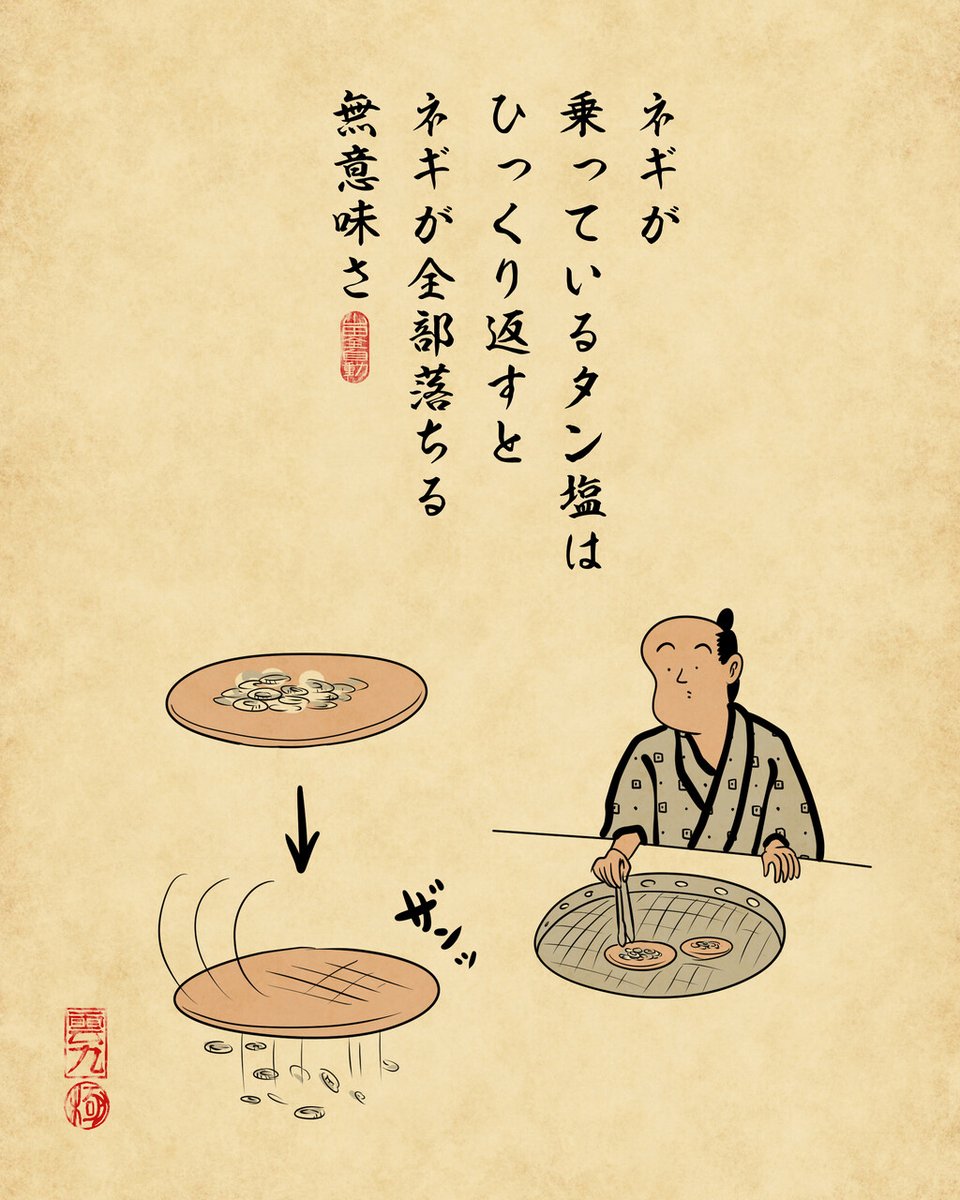 ネギが
乗っているタン塩は
ひっくり返すと
ネギが全部落ちる
無意味さ
ザンッ